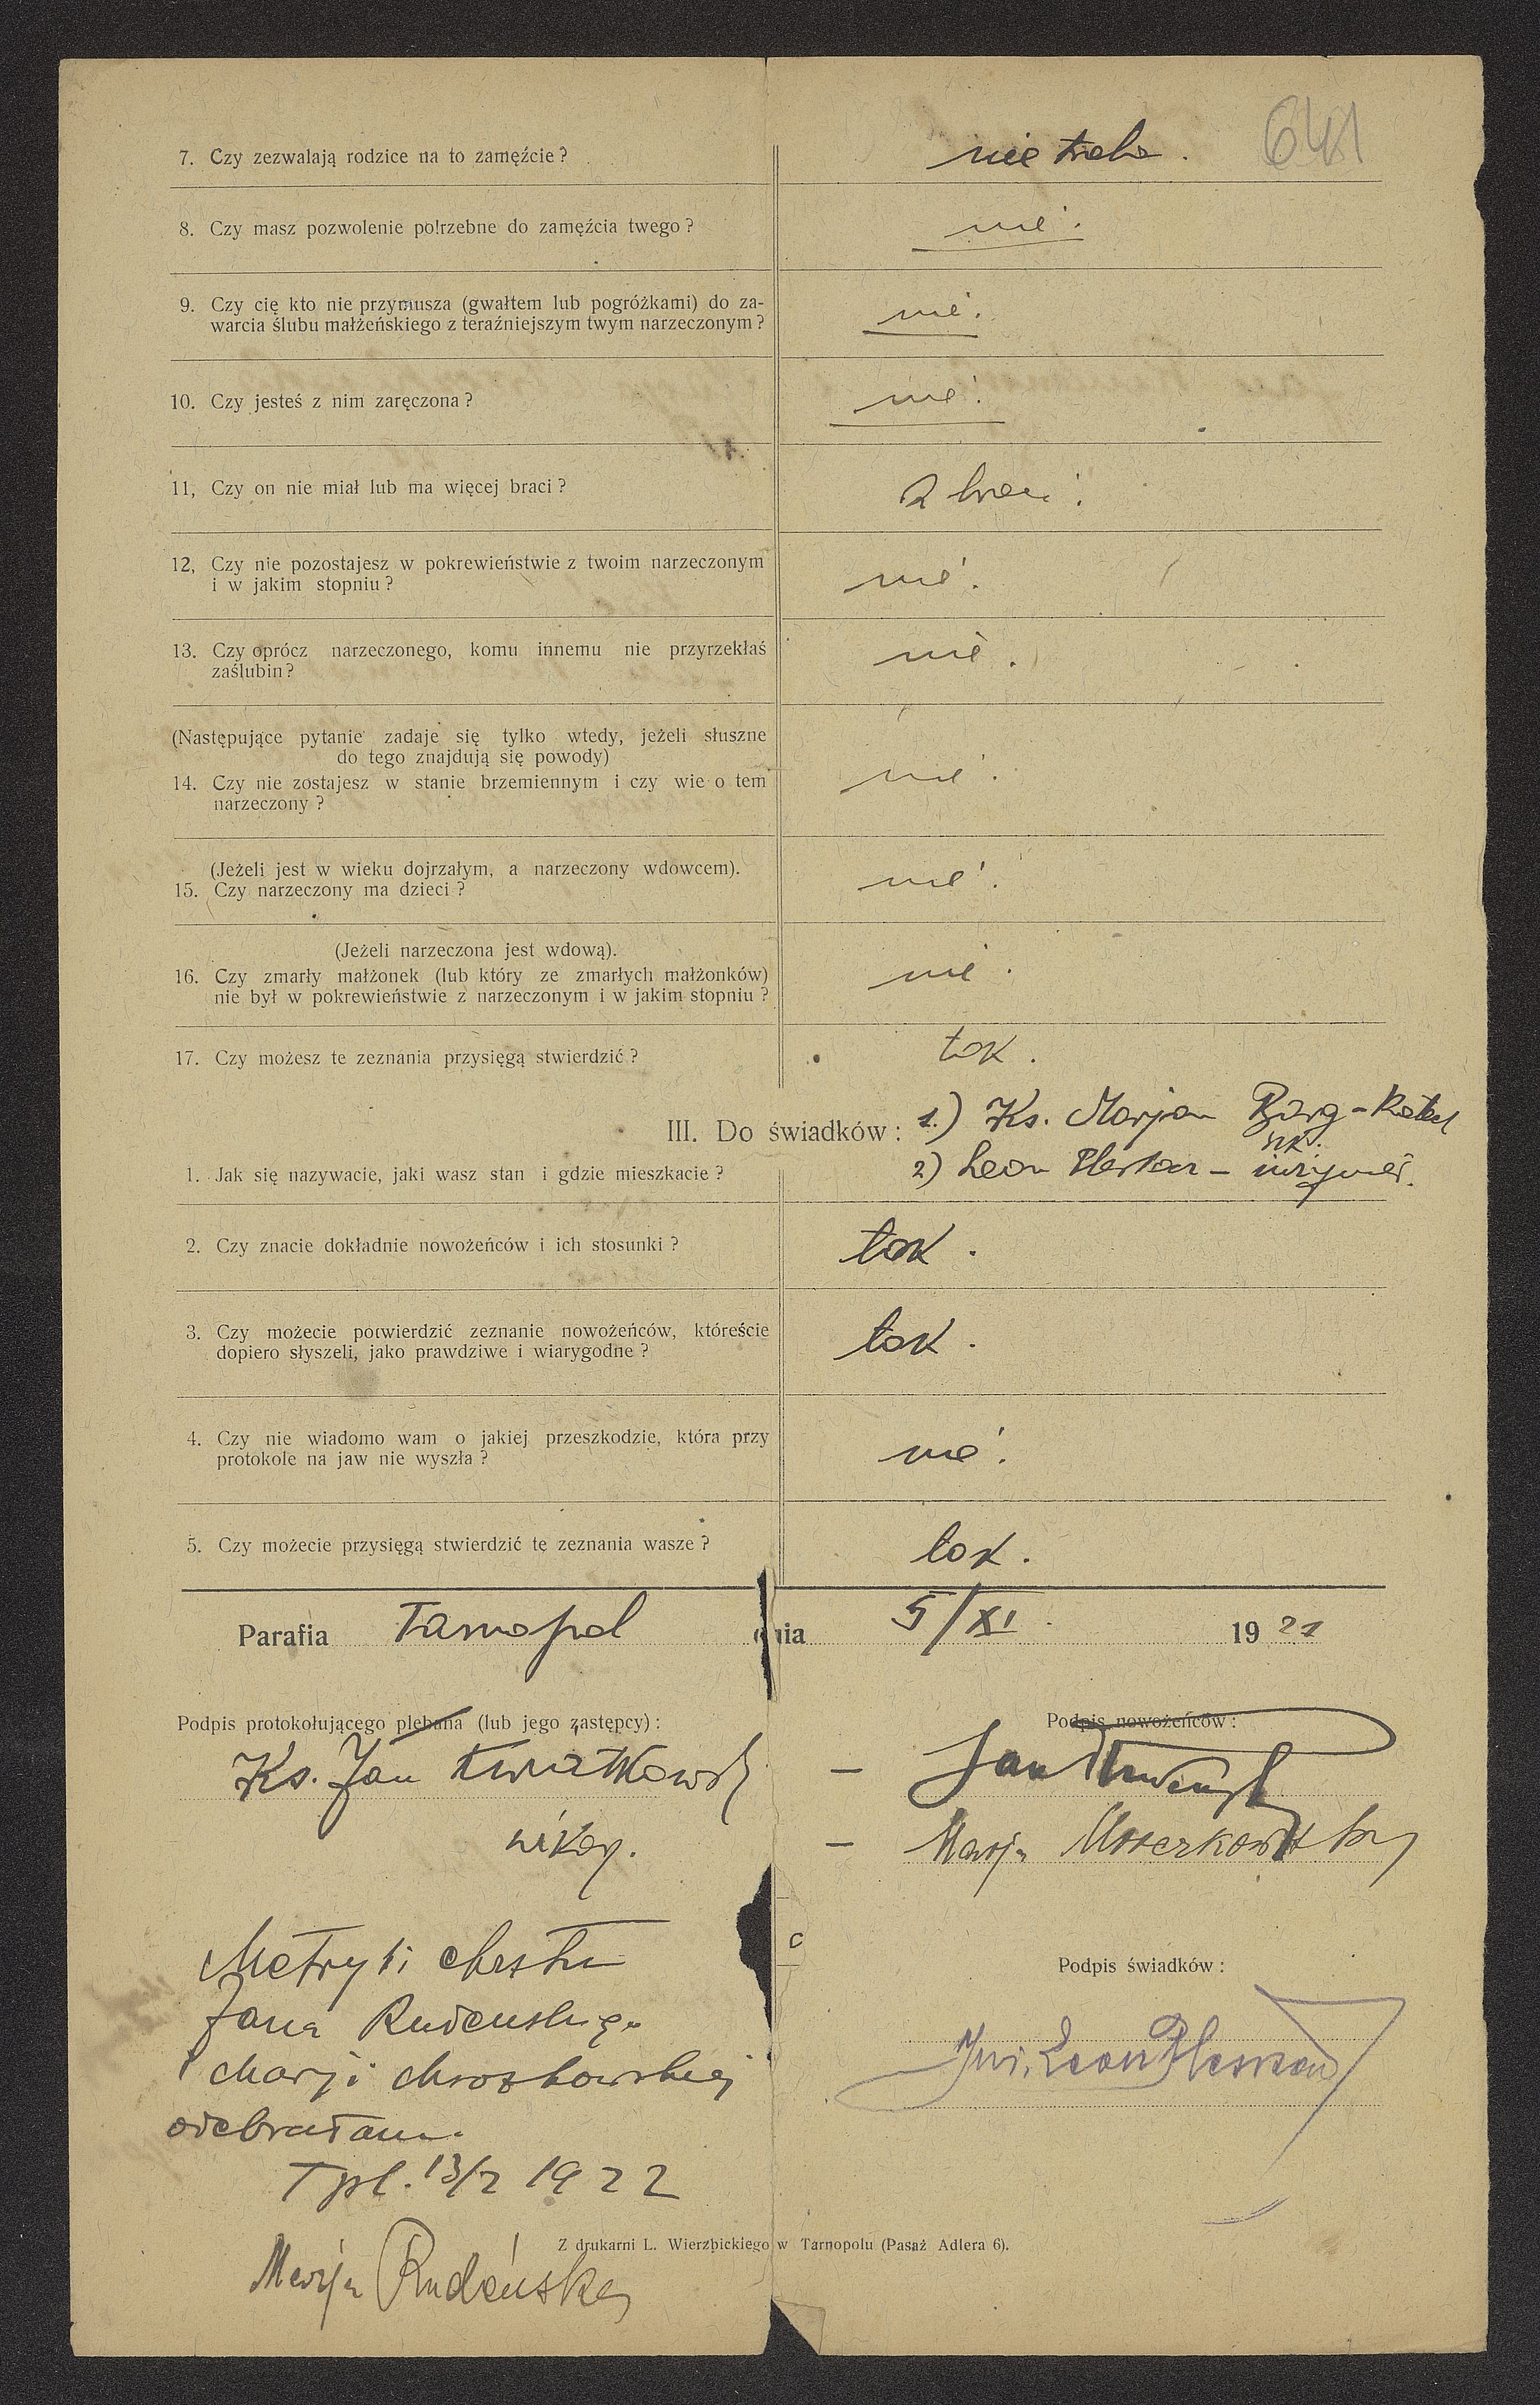 641
7. Czy zezwalają rodzice na to zamęźcie? nie treba.
8. Czy masz pozwolenie potrzebne do zamęźcia twego? nie.
9. Czy cię kto nie przymusza (gwałtem lub pogróżkami) do za-
warcia ślubu małżeńskiego z teraźniejszym twym narzeczonym? nie.
10. Czy jesteś z nim zaręczona? nie.
11, Czy on nie miał lub ma więcej braci? 2 braci.
12, Czy nie pozostajesz w pokrewieństwie z twoim narzeczonym
i w jakim stopniu? nie.
13. Czy oprócz narzeczonego, komu innemu nie przyrzekłaś
zaślubin? nie.
(Następujące pytanie zadaje się tylko wtedy, jeżeli słuszne
do tego znajdują się powody)
14. Czy nie zostajesz w stanie brzemiennym i czy wie o tem
narzeczony? nie.
(Jeżeli jest w wieku dojrzałym, a narzeczony wdowcem).
15. Czy narzeczony ma dzieci? nie.
(Jeżeli narzeczona jest wdową).
16. Czy zmarły małżonek (lub który ze zmarłych małżonków)
nie był w pokrewieństwie z narzeczonym i w jakim stopniu? nie.
17. Czy możesz te zeznania przysięgą stwierdzić? tak.
III. Do świadków: 1.) Ks. Marjan
1. Jak się nazywacie, jaki wasz stan i gdzie mieszkacie? 2) Leon
2. Czy znacie dokładnie nowożeńców i ich stosunki? tak.
3. Czy możecie potwierdzić zeznanie nowożeńców, któreście
dopiero słyszeli, jako prawdziwe i wiarygodne? tak.
4. Czy nie wiadomo wam o jakiej przeszkodzie, która przy
protokole na jaw nie wyszła? nie.
5. Czy możecie przysięgą stwierdzić te zeznania wasze? tak.
Parafia Tarnopol dnia 5/XI 1921
Podpis protokołującego plebana (lub jego zastępcy):
Ks. Jan Kwiatkowski
wikary.
Podpis nowożeńców:
— Jan
— Marja
Metryki chrztu
Jana Rudeńskiego
i Marji Mroszkowskiej
odebrałam.
Tpl. 13/2 1922
Marja Rudeńska
Podpis świadków:
Inż. Leon
Z drukarni L. Wierzbickiego w Tarnopolu (Pasaż Adlera 6).